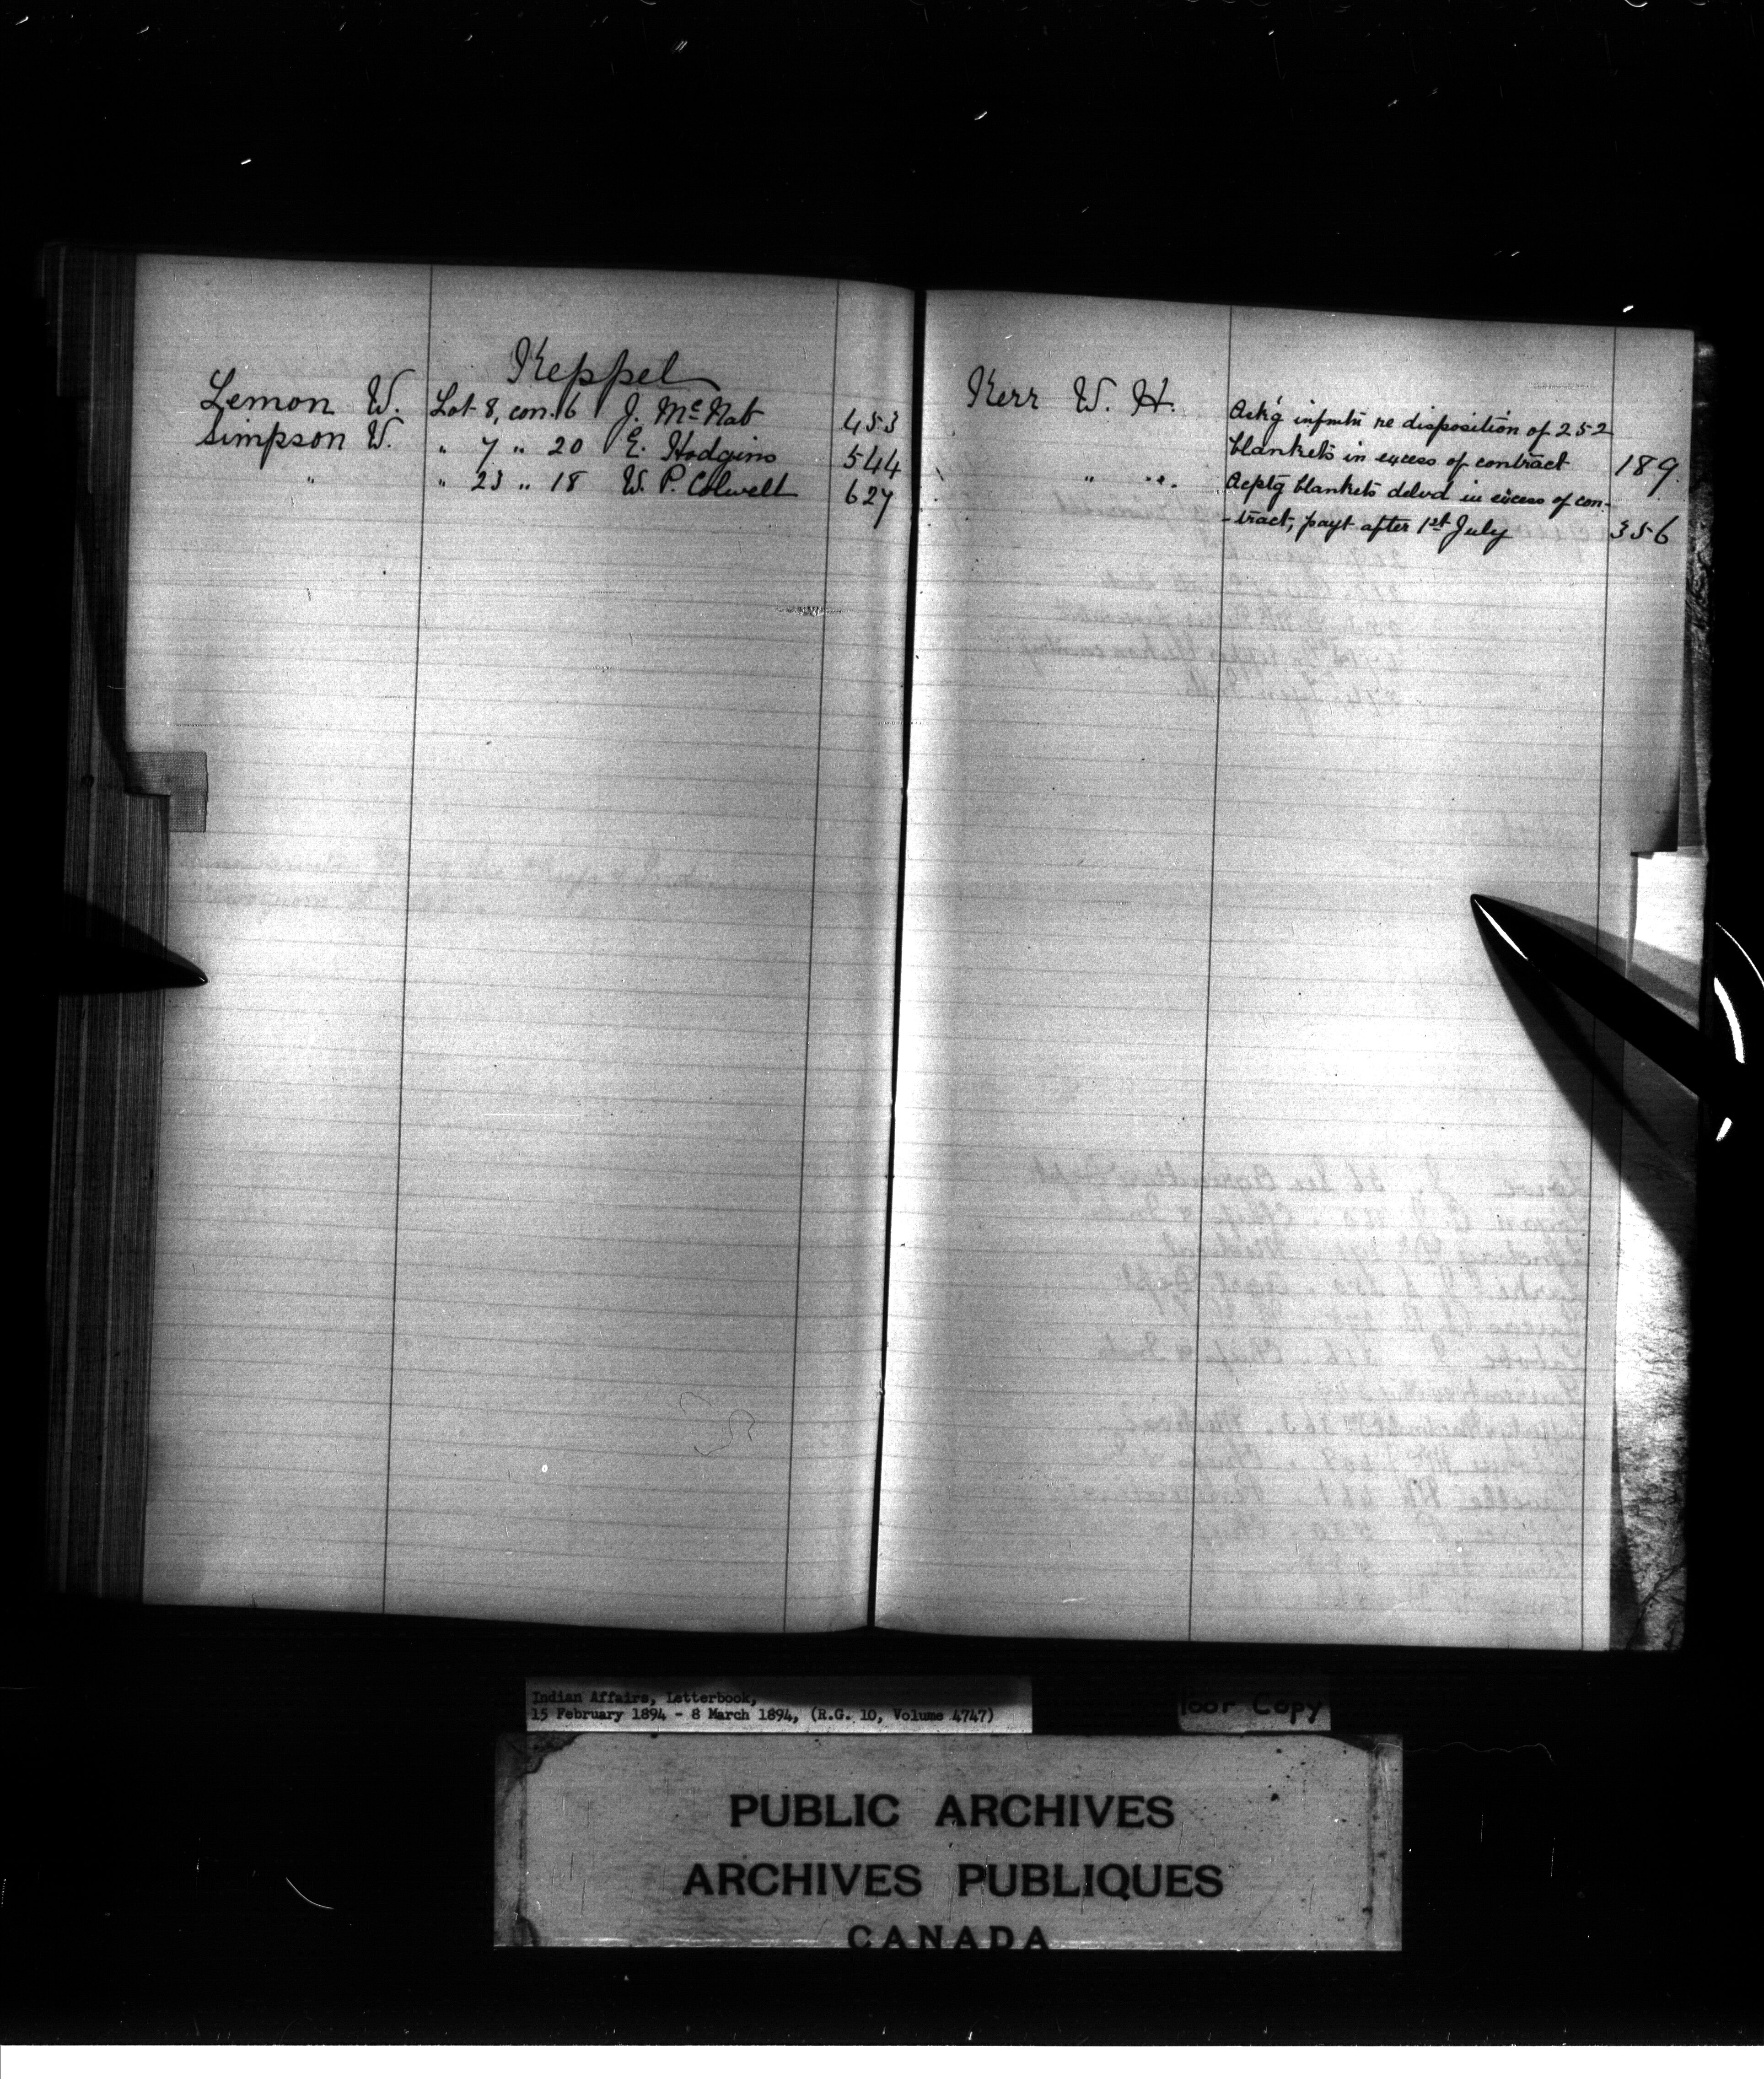 Keppel
Lemon W. Lot 8, con. 16 J. McNab 453
Simpson W. " 7 " 20 E. Hodgins 544
" " 23 " 18 W. P. Colwell 627
Kerr W. H. Ack'g infmtn re disposition of 252
blankets in excess of contract 189
" " " Acptg blankets delvd in excess of con-
-tract, payt after 1st July 356
Indian Affairs, Letterbook,
15 February 1894 - 8 March 1894, (R.G. 10, Volume 4747)
Poor Copy
PUBLIC ARCHIVES
ARCHIVES PUBLIQUES
CANADA